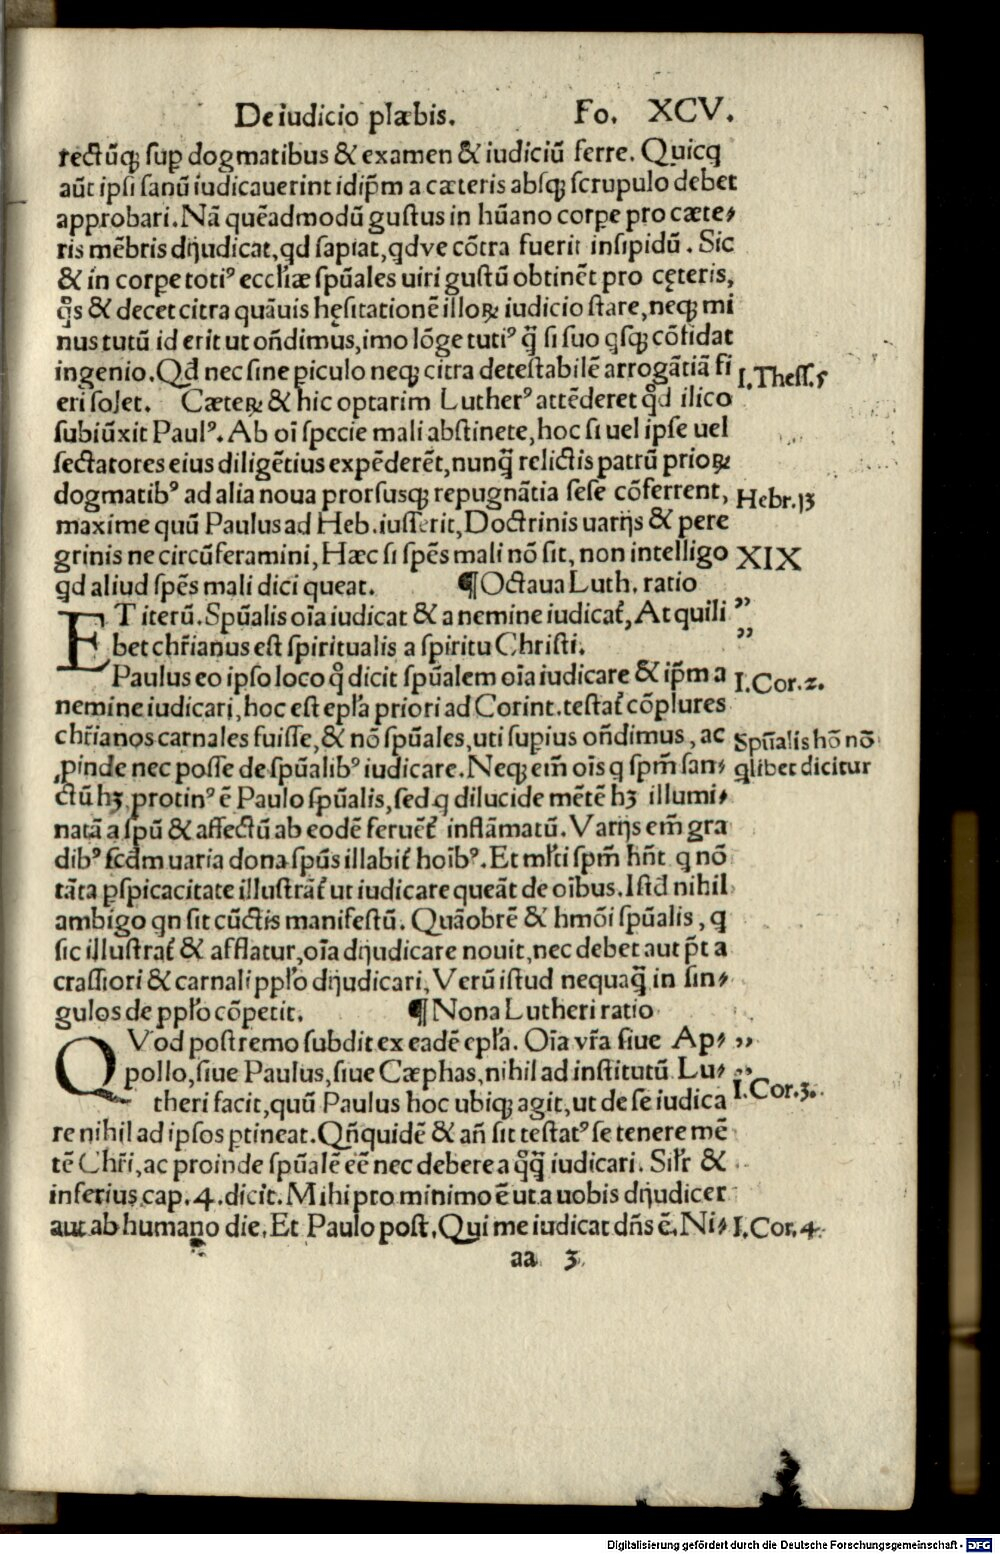 De iudicio plæbis. Fo. XCV.
rectūqꝫ sup̱ dogmatibus & examen & iudiciū ferre. Quicq̇
aūt ipsi sanū iudicauerint idip̄m a cæteris absqꝫ scrupulo debet
approbari. Nā quēadmodū gustus in hūano corpe pro cæte⸗
ris mēbris dijudicat, qd sapiat, qdve cōtra fuerit insipidū. Sic
& in corpe totiꝰ eccl'iæ spūales uiri gustū obtinēt pro cęteris,
q̊s & decet citra quāuis hęsitationē illoꝝ iudicio stare, neqꝫ mi
nus tutū id erit ut on̄dimus, imo lōge tutiꝰ q̄̃ si suo qsqꝫ cōfidat
ingenio. Qđ nec sine piculo neqꝫ citra detestabilē arrogātiā fi
eri solet. Cæteꝝ & hic optarim Lutherꝰ attēderet qđ ilico
I. Thess. 5
subiūxit Paulꝰ. Ab oī specie mali abstinete, hoc si uel ipse uel
sectatores eius diligētius expēderēt, nunq̄̃ relictis patrū prioꝝ
dogmatibꝰ ad alia noua prorsusqꝫ repugnātia sese cōferrent,
Hebr. 13
maxime quū Paulus ad Heb. iusserit, Doctrinis uarijs & pere
grinis ne circūferamini, Hæc si spēs mali nō sit, non intelligo
XIX
qd aliud spēs mali dici queat. ¶ Octaua Luth. ratio
ET iterū. Spūalis oīa iudicat & a nemine iudicat᷑, At quili ”
bet chr̄ianus est spiritualis a spiritu Christi. ”
Paulus eo ipso loco q̊ dicit spūalem oīa iudicare & ip̄m a
I. Cor. 2.
nemine iudicari, hoc est epl'a priori ad Corint. testat᷑ cōplures
chr̄ianos carnales fuisse, & nō spūales, uti supius on̄dimus, ac
Spūalis hō nō
ꝓinde nec posse de spūalibꝰ iudicare. Neqꝫ em̄ oīs q spm̄ san⸗
qlibet dicitur
ctū hꝫ, protinꝰ ē Paulo spūalis, sed q dilucide mētē hꝫ illumi⸗
natā a spū & affectū ab eodē feruēt᷑ inflāmatū. Varijs em̄ gra
dibꝰ scđm uaria dona spūs illabit᷑ hoībꝰ. Et ml'ti spm̄ hn̄t q nō
tāta pspicacitate illustrāt᷑ ut iudicare queāt de oībus. Istđ nihil
ambigo qn sit cūctis manifestū. Quāobrē & hmōi spūalis, q
sic illustrat᷑ & afflatur, oīa dijudicare nouit, nec debet aut p̄t a
crassiori & carnali ppl'o dijudicari, Verū istud nequaq̄̃ in sin⸗
gulos de ppl'o cōpetit. ¶ Nona Lutheri ratio
QVod postremo subdit ex eadē epl'a. Oīa vr̄a siue Ap⸗ ”
pollo, siue Paulus, siue Cæphas, nihil ad institutū Lu⸗ ”
I. Cor. 3.
theri facit, quū Paulus hoc ubiqꝫ agit, ut de se iudica
re nihil ad ipsos ptineat. Qn̄quidē & an̄ sit testatꝰ se tenere mē
tē Chr̄i, ac proinde spūalē eē nec debere a q̊q̄̃ iudicari. Sil'r &
inferius cap. 4. dicit. Mihi pro minimo ē ut a uobis dijudicer
aut ab humano die. Et Paulo post, Qui me iudicat dn̄s ē. Ni⸗
I. Cor. 4.
aa 3
Digitalisierung gefördert durch die Deutsche Forschungsgemeinschaft - DFG